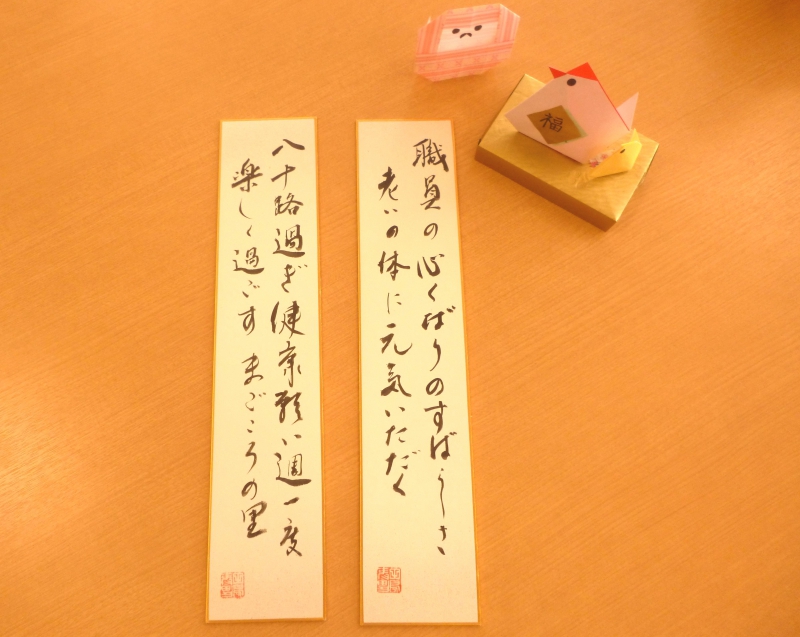 職員の心くばりのすばらしさ
老いの体に元気いただく
八十路過ぎ健康願い週一度
楽しく過ごす まごころの里
福